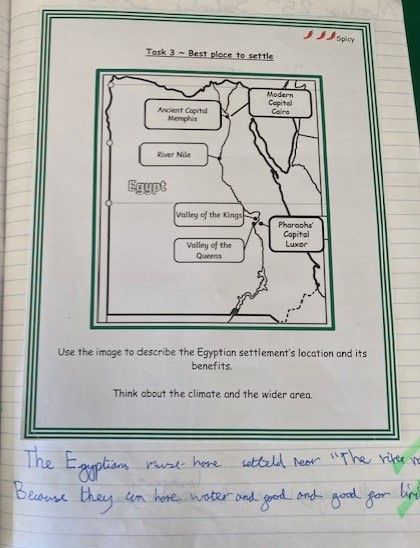 Spicy
Task 3 ~ Best place to settle
Modern
Capital
Cairo
Ancient Capital
Memphis
River Nile
Egypt
Valley of the Kings
Pharaohs'
Capital
Luxor
Valley of the
Queens
Use the image to describe the Egyptian settlement's location and its
benefits.
Think about the climate and the wider area.
The Egyptians must have setteld near "The river
Because they can have water and good and good for